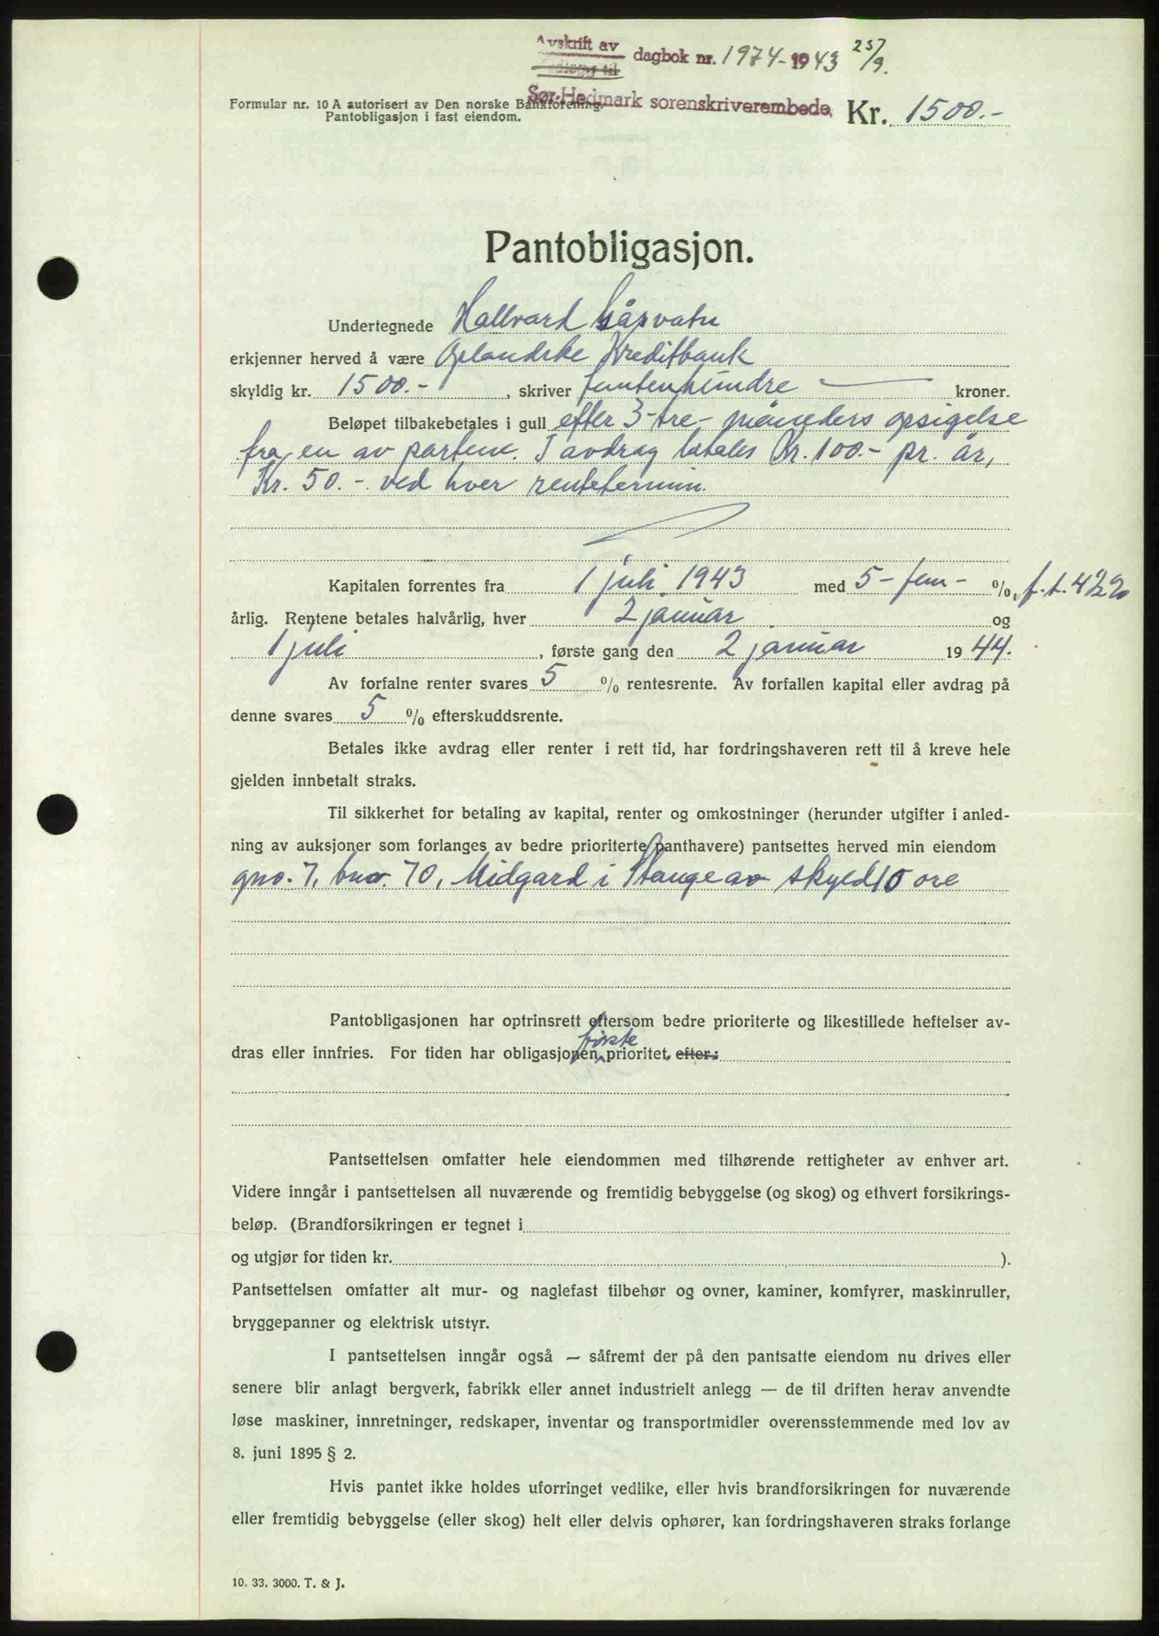 Avskrift av dagbok nr. 1974-1943 25/9.
Sør-Hedmark sorenskriverembede.
Formular nr. 10 A autorisert av Den norske Bankforening. Kr. 1500.-
Pantobligasjon i fast eiendom.
Pantobligasjon.
Undertegnede Hallvard
erkjenner herved å være Oplandske Kreditbank
skyldig kr. 1500.-, skriver femtenhundre kroner.
Beløpet tilbakebetales i gull efter 3-tre- måneders opsigelse
fra en av partene. I avdrag betales Kr. 100.- pr. år,
Kr. 50.- ved hver rentetermin.
Kapitalen forrentes fra 1 juli 1943 med 5-fem- %, f.t. 4½%
årlig. Rentene betales halvårlig, hver 2 januar og
1 juli, første gang den 2 januar 1944.
Av forfalne renter svares 5 % rentesrente. Av forfallen kapital eller avdrag på
denne svares 5 % efterskuddsrente.
Betales ikke avdrag eller renter i rett tid, har fordringshaveren rett til å kreve hele
gjelden innbetalt straks.
Til sikkerhet for betaling av kapital, renter og omkostninger (herunder utgifter i anled-
ning av auksjoner som forlanges av bedre prioriterte panthavere) pantsettes herved min eiendom
gno. 7, bno. 70, Midgard i Stange av skyld 10 øre
Pantobligasjonen har optrinsrett eftersom bedre prioriterte og likestillede heftelser av-
første
dras eller innfries. For tiden har obligasjonen prioritet. efter:
Pantsettelsen omfatter hele eiendommen med tilhørende rettigheter av enhver art.
Videre inngår i pantsettelsen all nuværende og fremtidig bebyggelse (og skog) og ethvert forsikrings-
beløp. (Brandforsikringen er tegnet i
og utgjør for tiden kr. ).
Pantsettelsen omfatter alt mur- og naglefast tilbehør og ovner, kaminer, komfyrer, maskinruller,
bryggepanner og elektrisk utstyr.
I pantsettelsen inngår også — såfremt der på den pantsatte eiendom nu drives eller
senere blir anlagt bergverk, fabrikk eller annet industrielt anlegg — de til driften herav anvendte
løse maskiner, innretninger, redskaper, inventar og transportmidler overensstemmende med lov av
8. juni 1895 § 2.
Hvis pantet ikke holdes uforringet vedlike, eller hvis brandforsikringen for nuværende
eller fremtidig bebyggelse (eller skog) helt eller delvis ophører, kan fordringshaveren straks forlange
10. 33. 3000. T. & J.